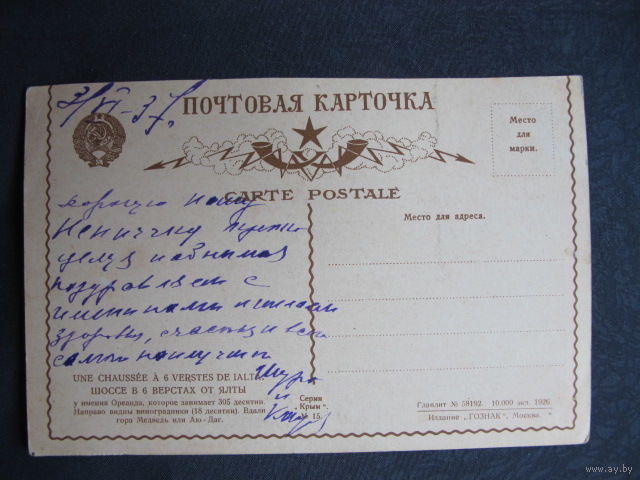 3/VI-37г.
ПОЧТОВАЯ КАРТОЧКА
Место
для
марки.
CARTE POSTALE
Место для адреса.
нашу
целуя и обнимая
поздравляем с
именинами и желаем
здоровья, счастья и все
самого наилучшего
Шура
и
UNE CHAUSSÉE À 6 VERSTES DE IALTA.
ШОССЕ В 6 ВЕРСТАХ ОТ ЯЛТЫ
у имения Ореанда, которое занимает 305 десятин.
Направо видны виноградники (18 десятин). Вдали
гора Медведь или Аю-Даг.
Серия
„Крым“.
15.
Главлит № 58192. 10.000 экз. 1926.
Издание „ГОЗНАК“, Москва.
www.ay.by